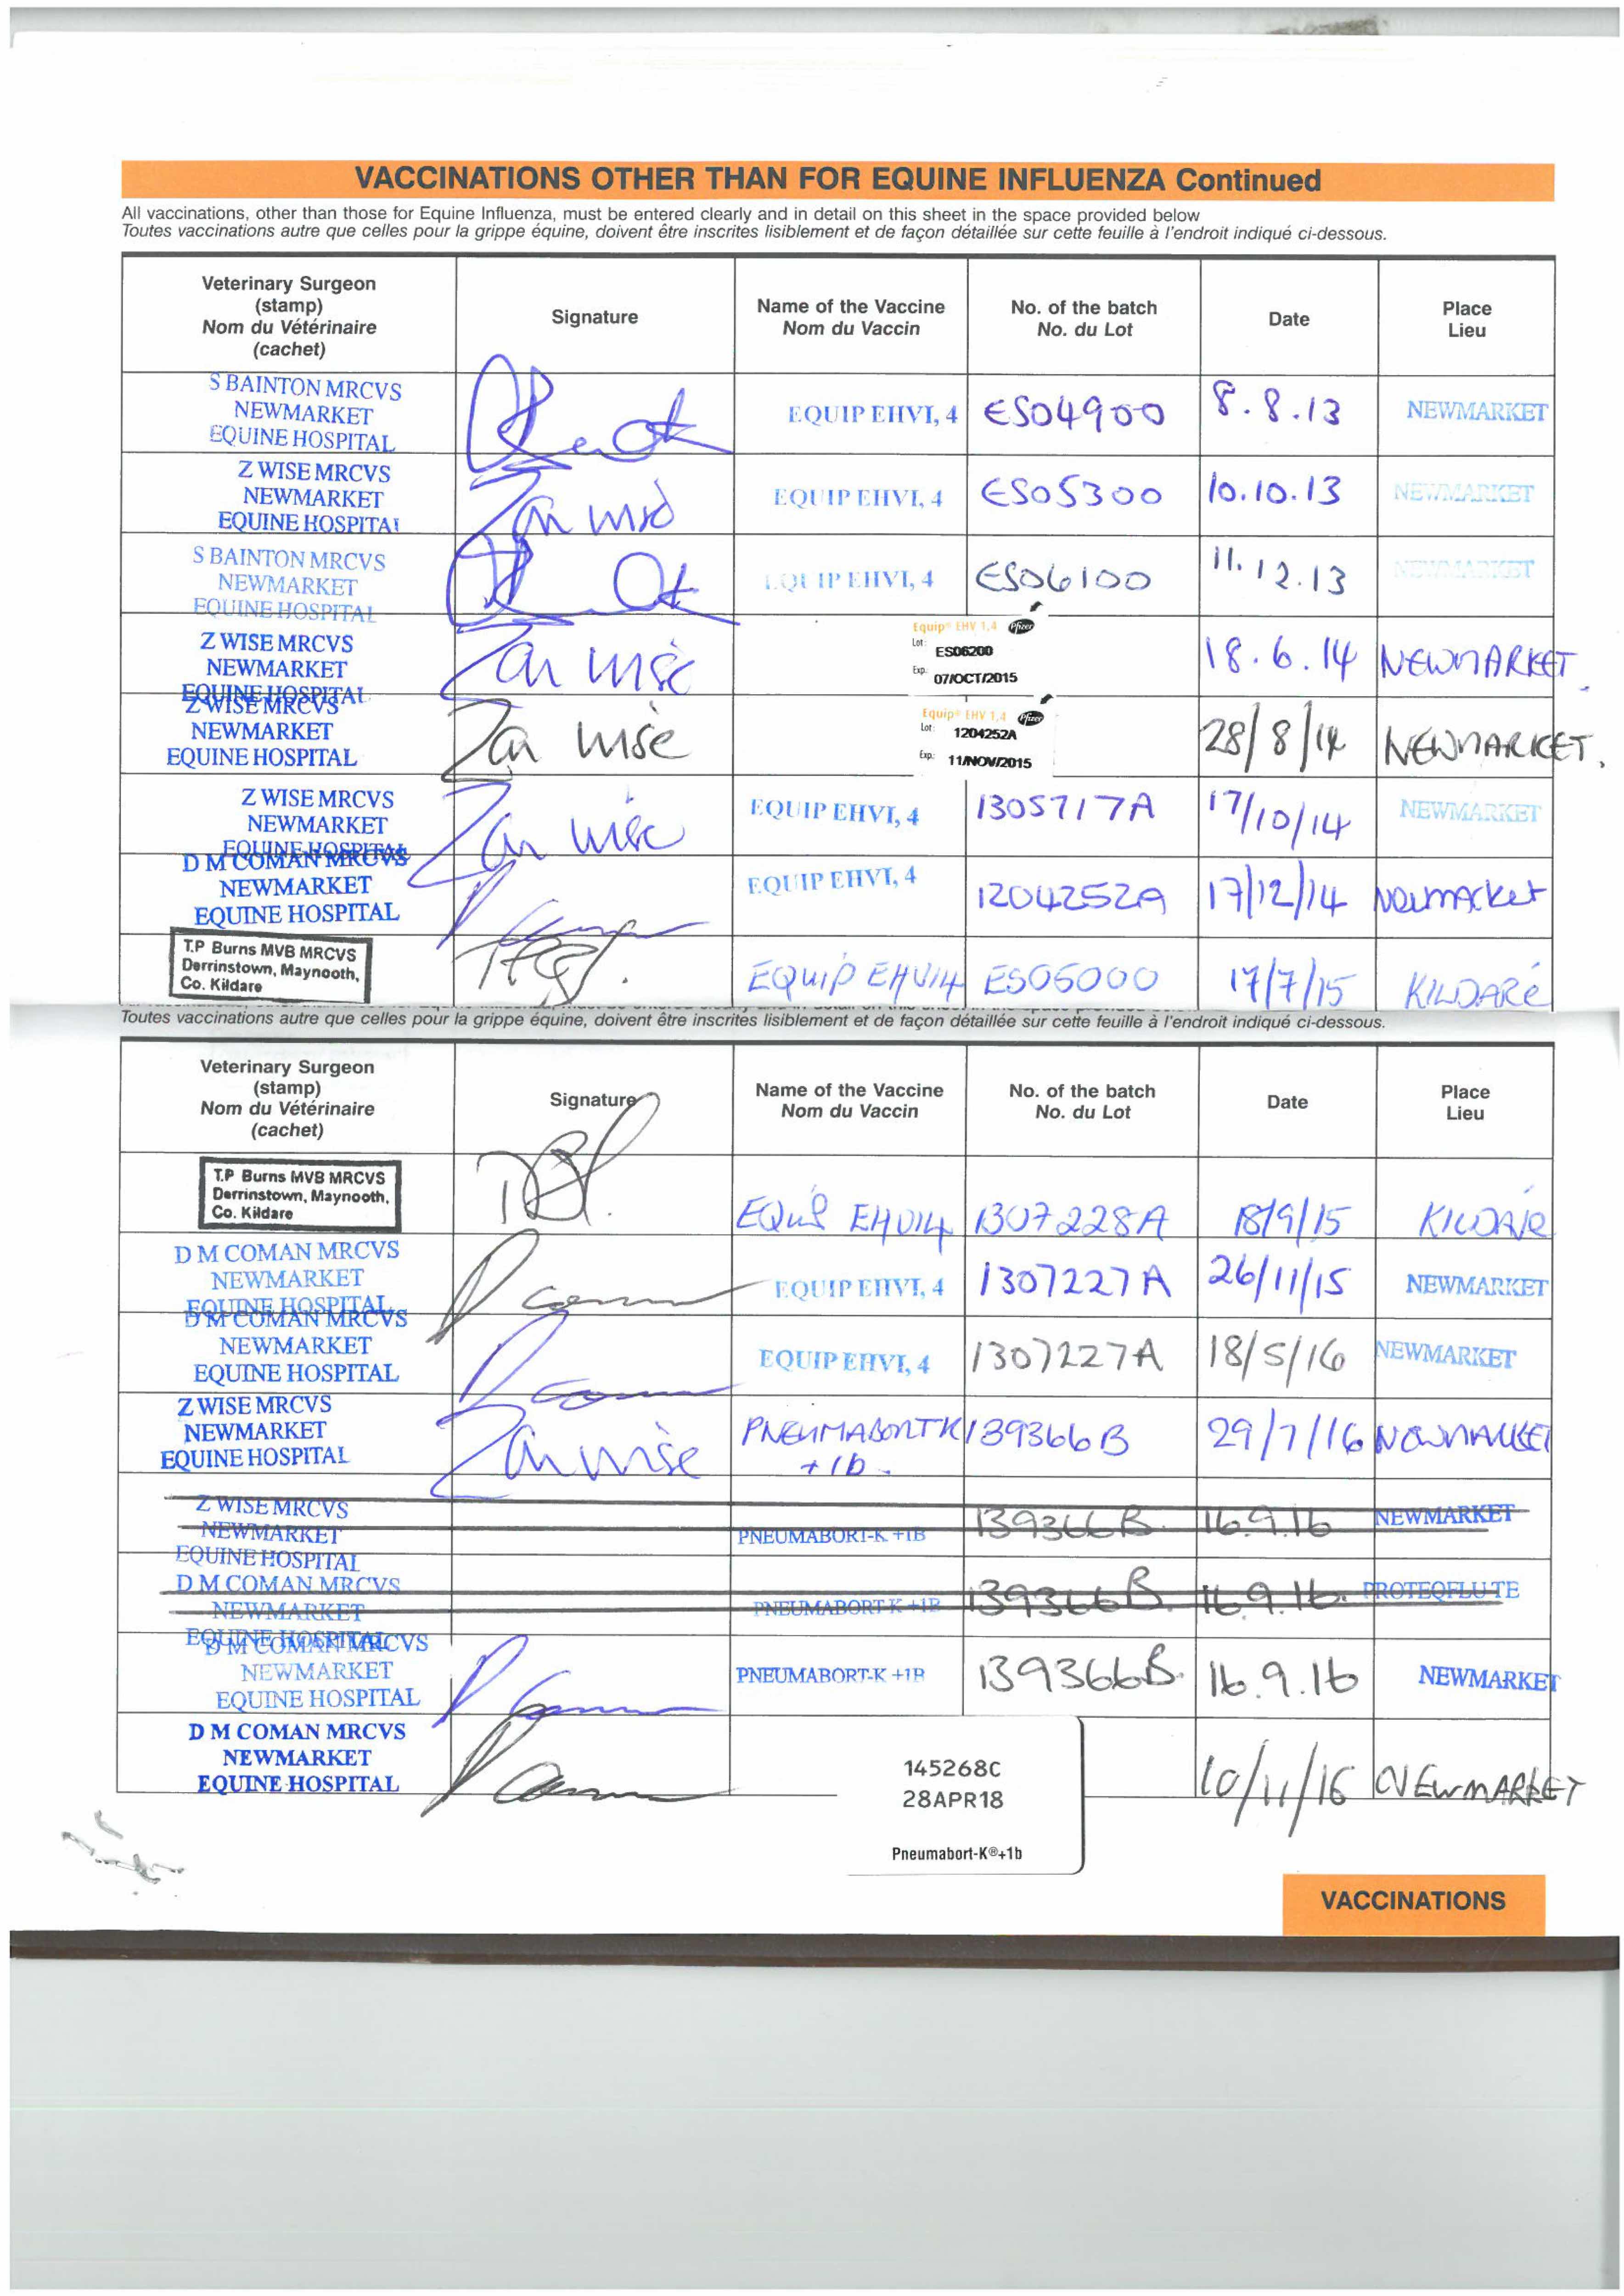 VACCINATIONS OTHER THAN FOR EQUINE INFLUENZA Continued
All vaccinations, other than those for Equine Influenza, must be entered clearly and in detail on this sheet in the space provided below
Toutes vaccinations autre que celles pour la grippe équine, doivent être inscrites lisiblement et de façon détaillée sur cette feuille à l'endroit indiqué ci-dessous.
Veterinary Surgeon
(stamp)
Nom du Vétérinaire
(cachet)
Signature
Name of the Vaccine
Nom du Vaccin
No. of the batch
No. du Lot
Date
Place
Lieu
S BAINTON MRCVS
NEWMARKET
EQUINE HOSPITAL
EQUIP EHVI, 4
ES04900
8.8.13
NEWMARKET
Z WISE MRCVS
NEWMARKET
EQUINE HOSPITAL
EQUIP EHVI, 4
ES05300
10.10.13
NEWMARKET
S BAINTON MRCVS
NEWMARKET
EQUINE HOSPITAL
EQUIP EHVI, 4
ES06100
11.12.13
NEWMARKET
Z WISE MRCVS
NEWMARKET
EQUINE HOSPITAL
Equip® EHV 1,4 Pfizer
Lot: ES06200
Exp. 07/OCT/2015
18.6.14
NEWMARKET.
Z WISE MRCVS
NEWMARKET
EQUINE HOSPITAL
Zan Wise
Equip® EHV 1,4 Pfizer
Lot: 1204252A
Exp. 11/NOV/2015
28/8/14
NEWMARKET.
Z WISE MRCVS
NEWMARKET
EQUINE HOSPITAL
EQUIP EHVI, 4
1305717A
17/10/14
NEWMARKET
D M COMAN MRCVS
NEWMARKET
EQUINE HOSPITAL
EQUIP EHVI, 4
1204252A
17/12/14
Newmarket
T.P Burns MVB MRCVS
Derrinstown, Maynooth,
Co. Kildare
EQUIP EHV14
ES05000
17/7/15
KILDARE
Toutes vaccinations autre que celles pour la grippe équine, doivent être inscrites lisiblement et de façon détaillée sur cette feuille à l'endroit indiqué ci-dessous.
Veterinary Surgeon
(stamp)
Nom du Vétérinaire
(cachet)
Signature
Name of the Vaccine
Nom du Vaccin
No. of the batch
No. du Lot
Date
Place
Lieu
T.P Burns MVB MRCVS
Derrinstown, Maynooth,
Co. Kildare
EQUIP EHV14
1307228A
18/9/15
KILDARE
D M COMAN MRCVS
NEWMARKET
EQUINE HOSPITAL
EQUIP EHVI, 4
1307227A
26/11/15
NEWMARKET
D M COMAN MRCVS
NEWMARKET
EQUINE HOSPITAL
EQUIP EHVI, 4
1307227A
18/5/16
NEWMARKET
Z WISE MRCVS
NEWMARKET
EQUINE HOSPITAL
PNEUMABORTK
+1b.
139366B
29/7/16
NEWMARKET
Z WISE MRCVS
NEWMARKET
EQUINE HOSPITAL
PNEUMABORT-K +1B
139366B
16.9.16
NEWMARKET
D M COMAN MRCVS
NEWMARKET
EQUINE HOSPITAL
PNEUMABORT-K +1B
139366B.
16.9.16.
PROTEQFLUTE
D M COMAN MRCVS
NEWMARKET
EQUINE HOSPITAL
PNEUMABORT-K +1B
139366B.
16.9.16
NEWMARKET
D M COMAN MRCVS
NEWMARKET
EQUINE HOSPITAL
145268C
28APR18
Pneumabort-K®+1b
10/11/16
NEWMARKET
VACCINATIONS